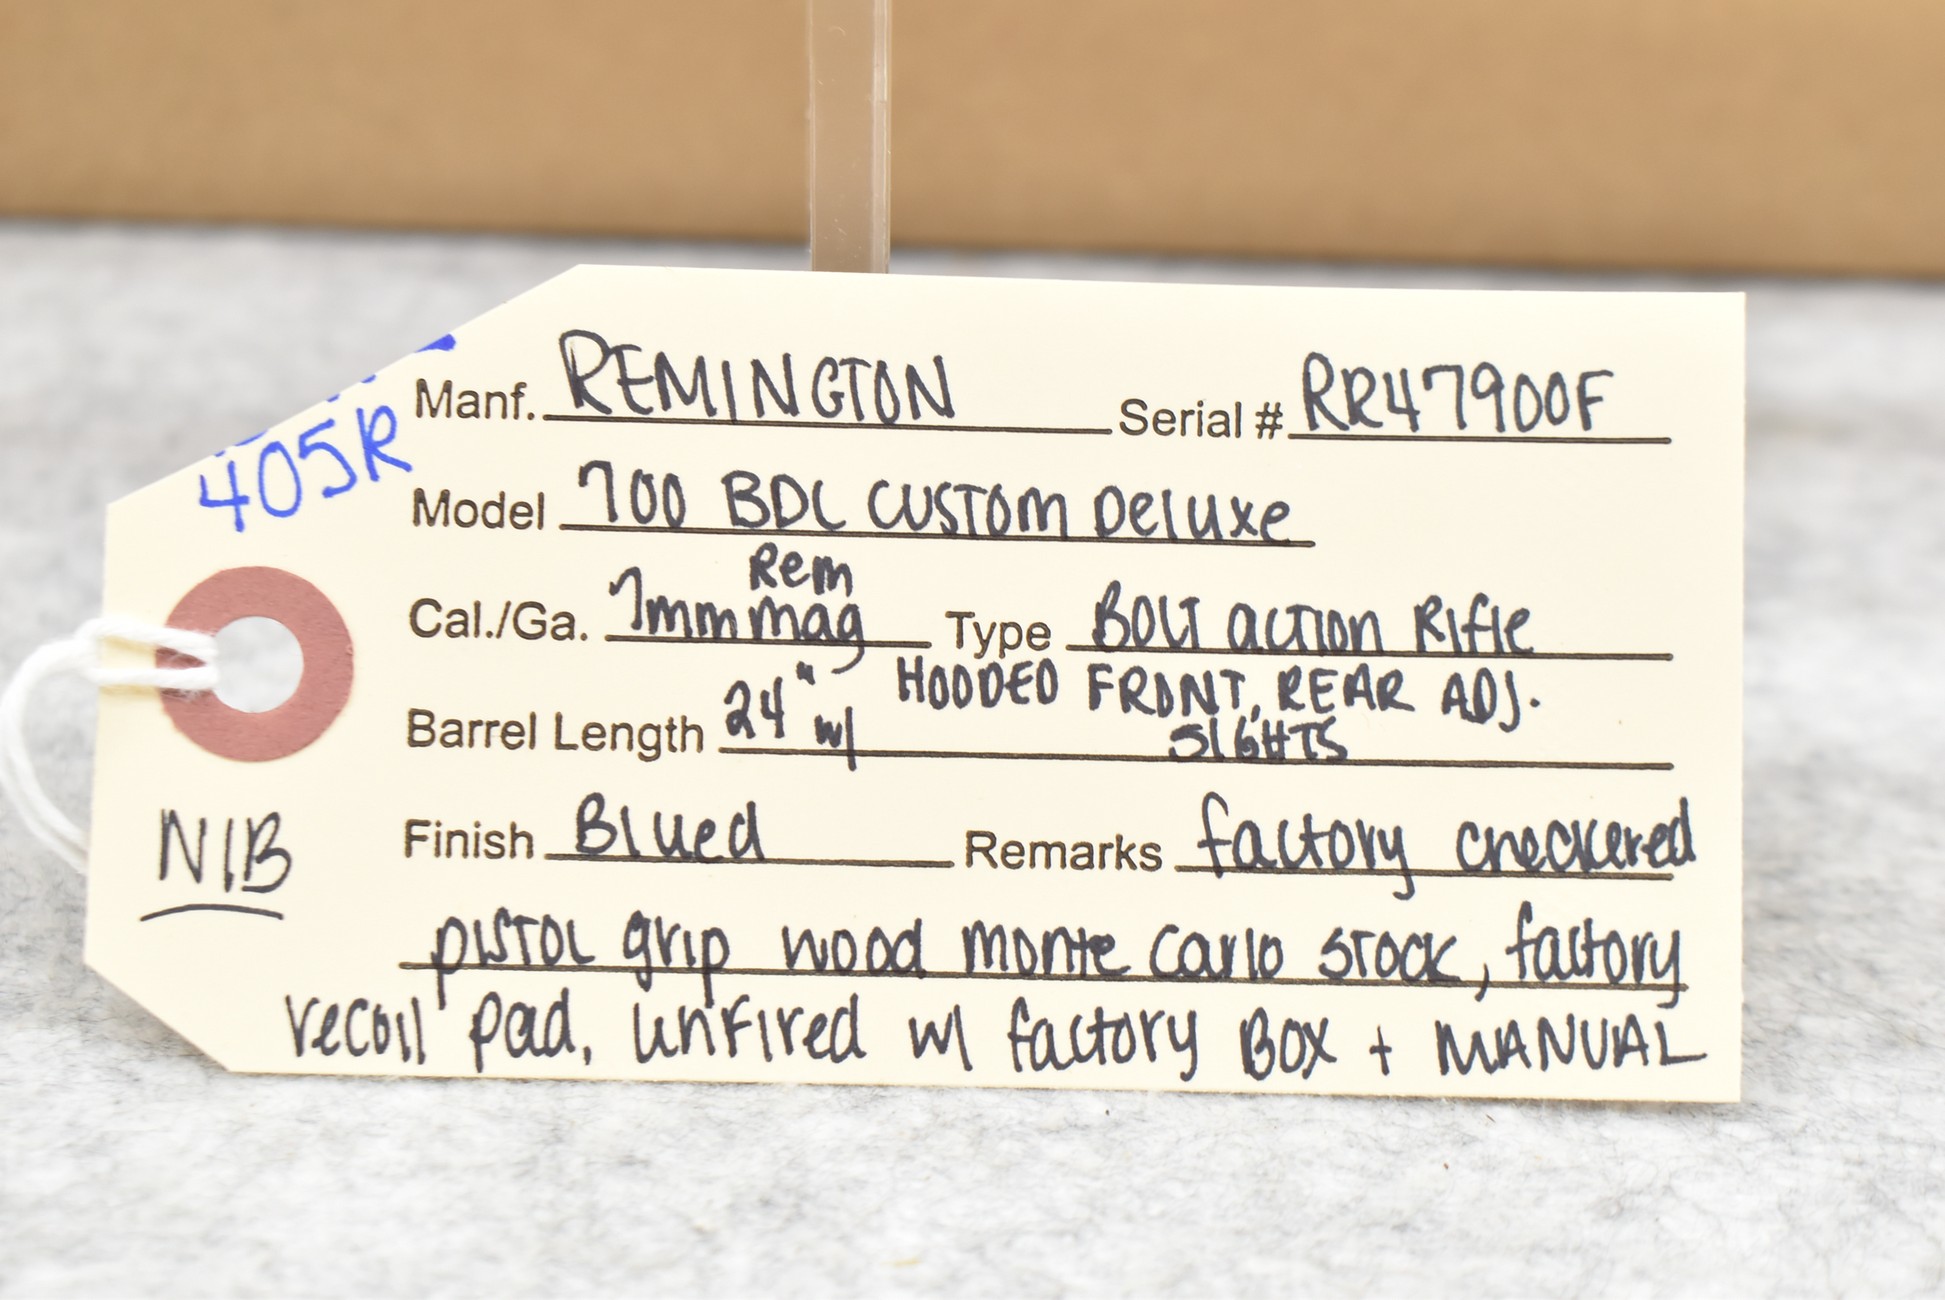 405R
Manf. REMINGTON Serial # RR47900F
Model 700 BDL CUSTOM Deluxe
Rem
Cal./Ga. 7mm mag Type BOLT action Rifle
Barrel Length 24" w/ HOODED FRONT, REAR ADJ.
SIGHTS
Finish Blued Remarks factory checkered
NIB
pistol grip wood monte carlo stock, factory
recoil pad, unfired w/ factory BOX + MANUAL